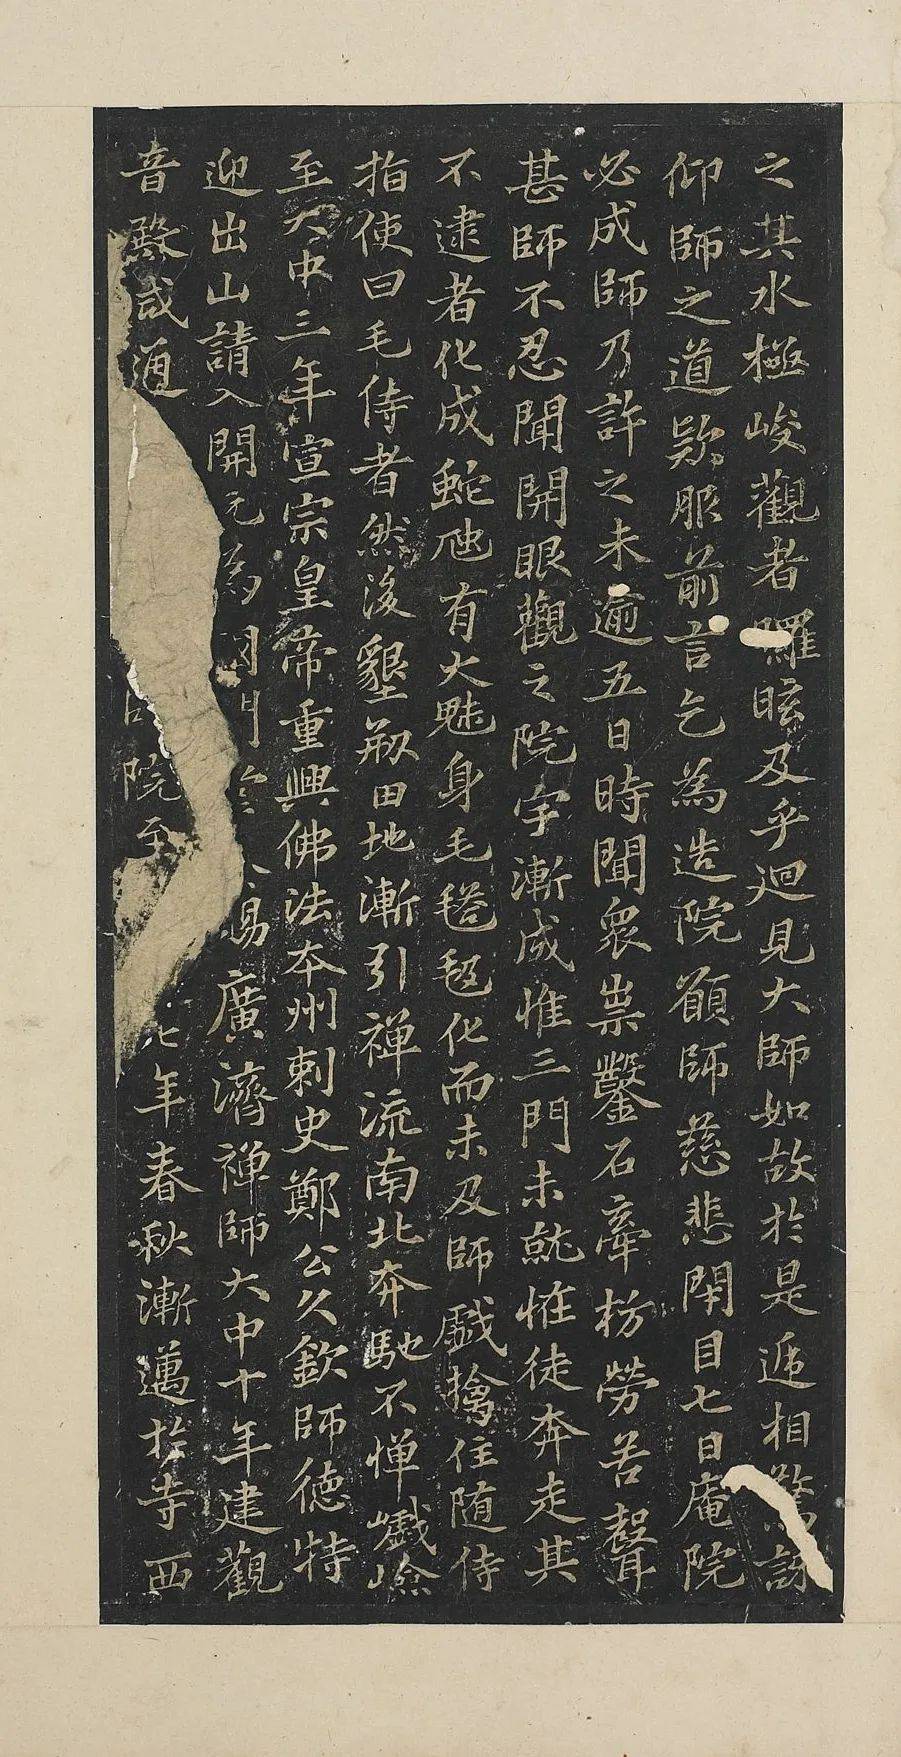 之其水極峻觀者眩及乎迴見大師如故於是遞相驚訝
仰師之道歎服前言乞為造院願師慈悲閉目七日庵院
必成師乃許之未逾五日時聞眾祟鑿石牽枋勞苦聲
甚師不忍聞開眼觀之院宇漸成惟三門未就恠徒奔走其
不逮者化成蛇虺有大魅身毛毶毿化而未及師戲擒住隨侍
指使曰毛侍者然後墾剏田地漸引禪流南北奔馳不憚巇嶮
至大中三年宣宗皇帝重興佛法本州刺史鄭公久欽師德特
迎出山請入開元為國 廣濟禪師大中十年建觀
音殿咸通 院至 七年春秋漸邁於寺西